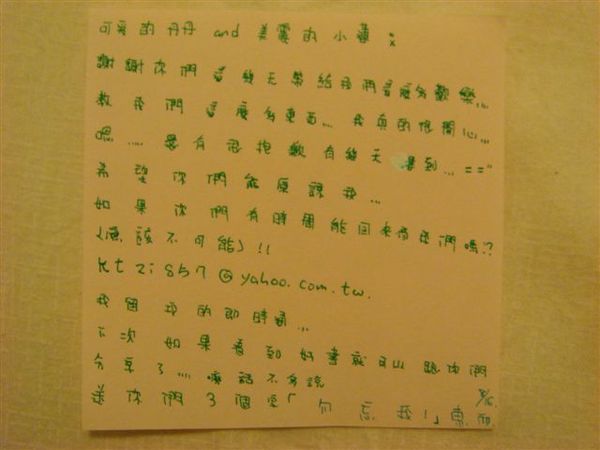 可愛的丹丹 and 美麗的小蓮:
謝謝你們這幾天帶給我們這麼多歡樂...
教我們這麼多東西... 我真的很開心...
嗯..... 還有很抱歉有幾天遲到... =="
希望你們能原諒我...
如果你們有時間能回來看我們嗎??
(應該不可能)!!
ktzi857@yahoo.com.tw.
我留我的即時通...
下次如果看到好書就可以跟你們
分享了.... 廢話不多說
送你們3個字「勿忘我!」